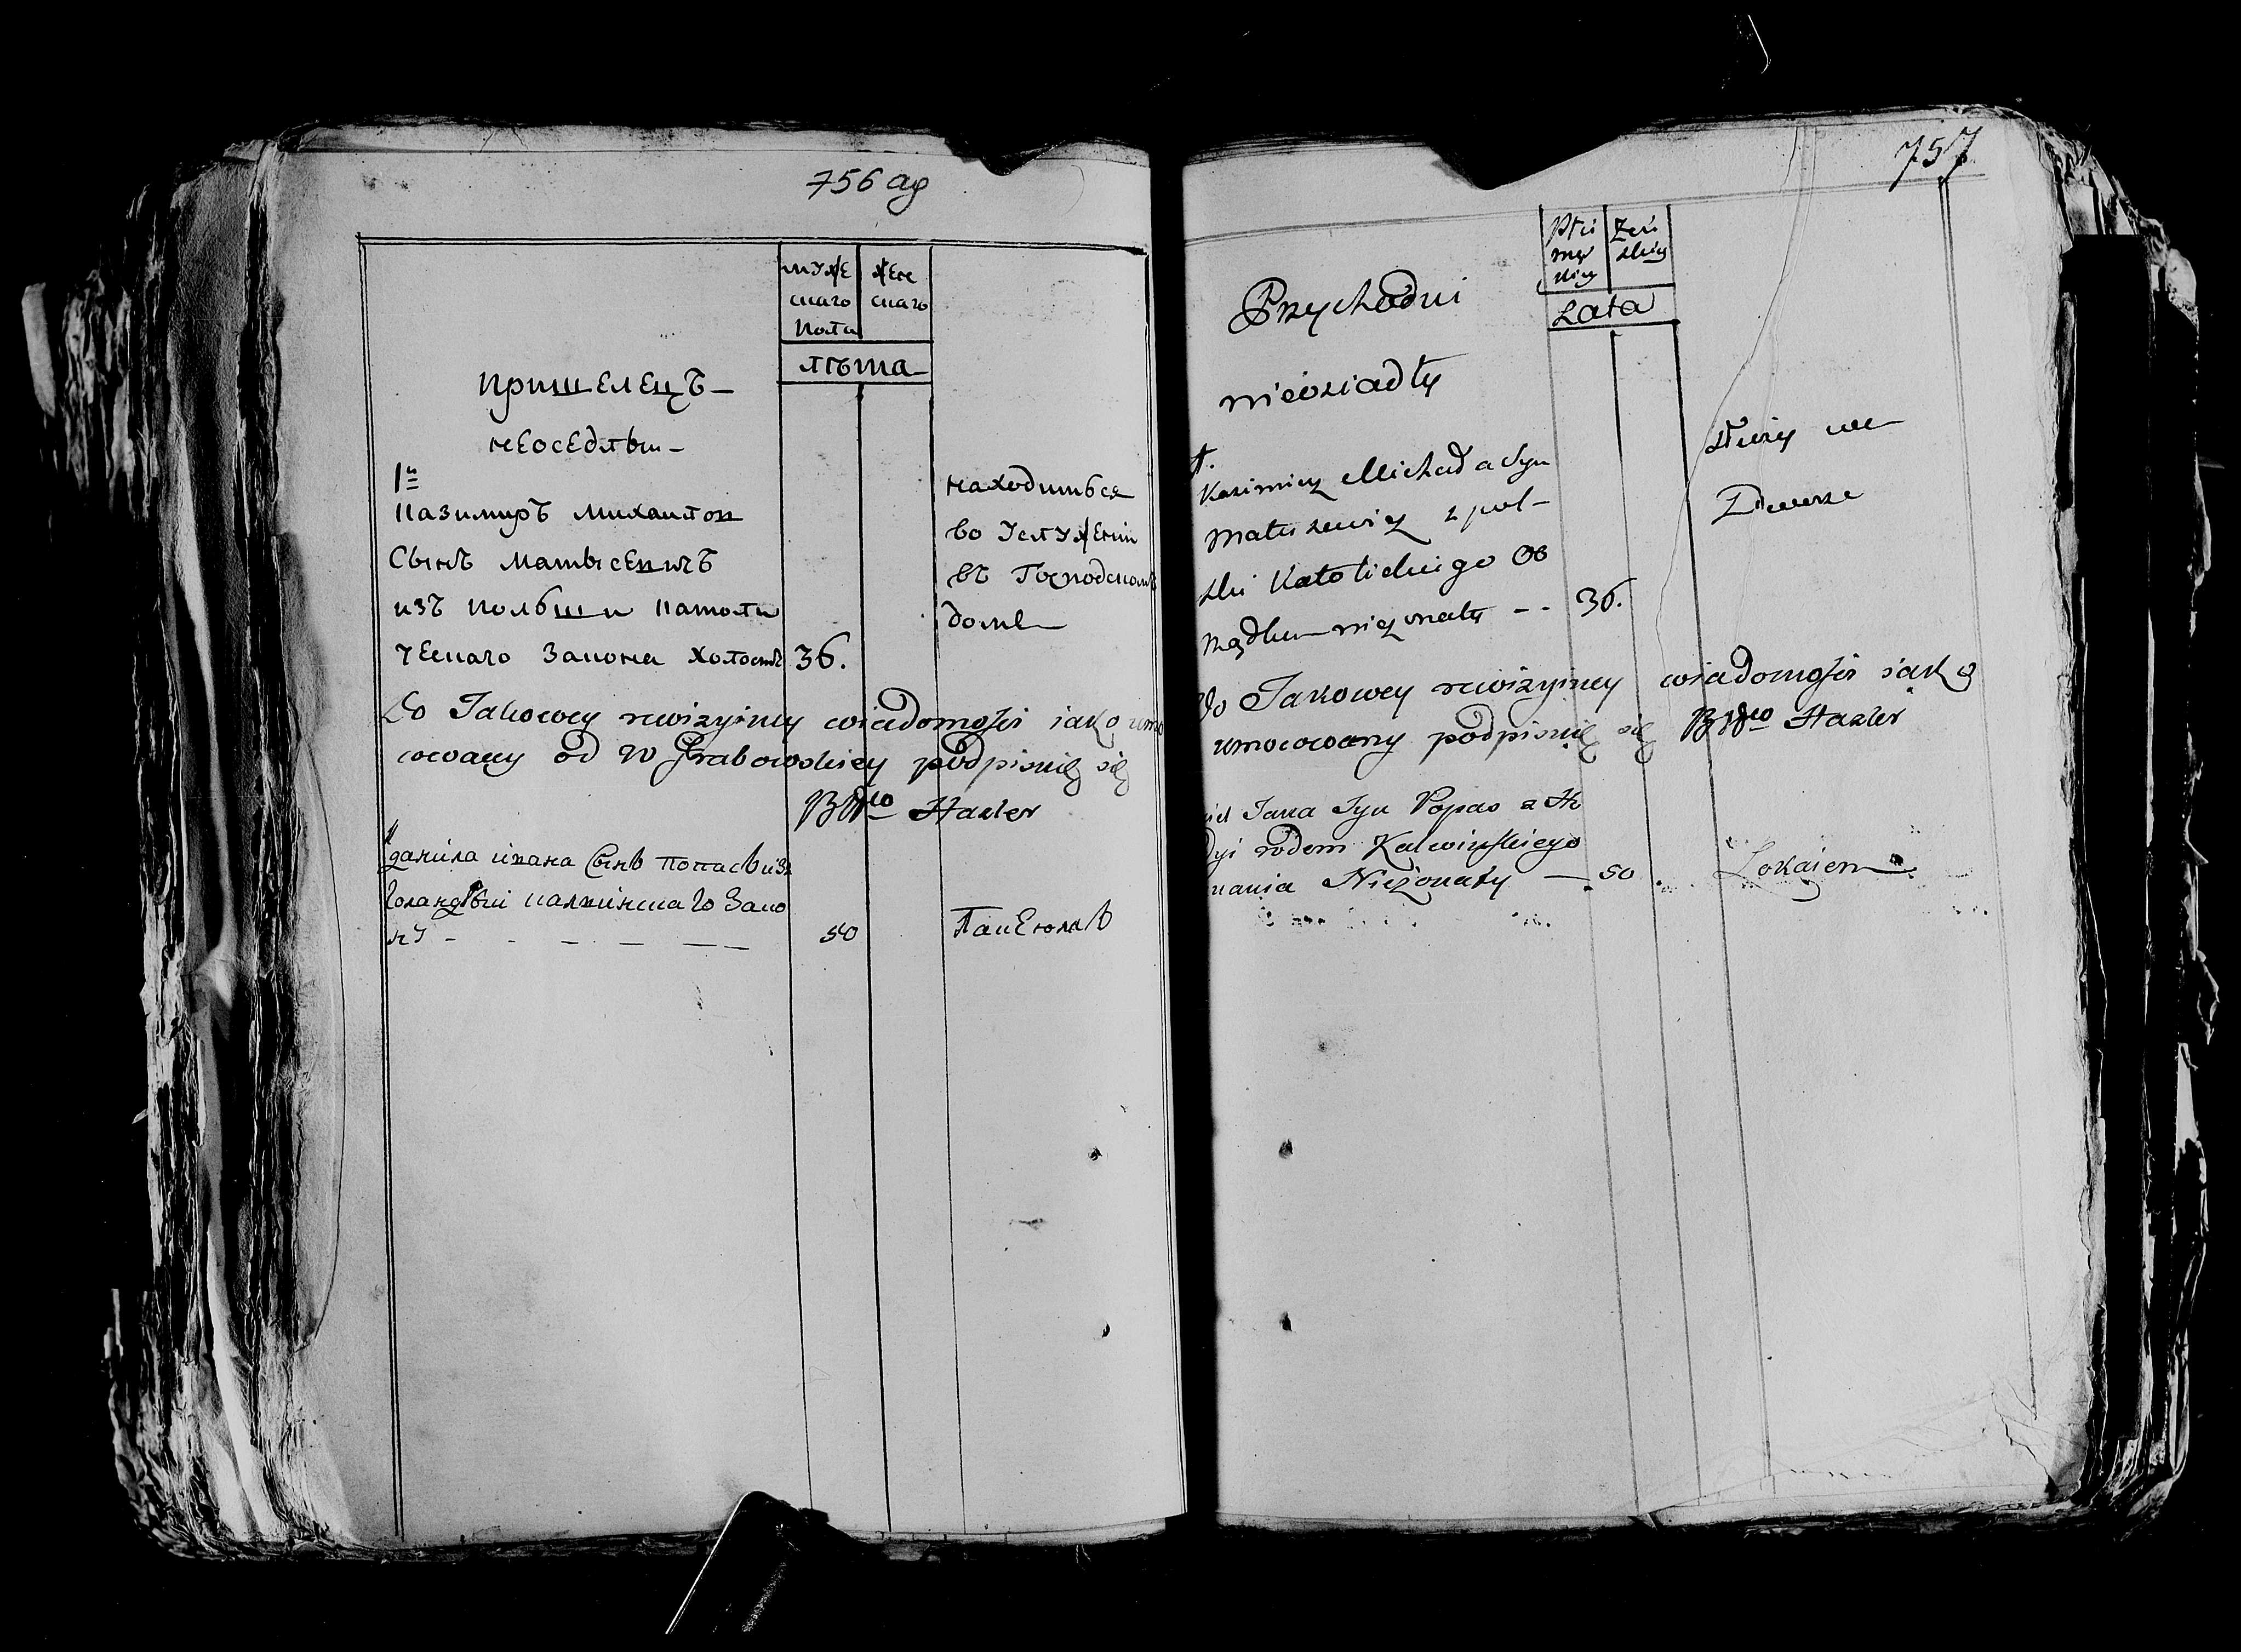 756 ag
муже
скаго
пола
жен
скаго
лѣта
пришелецъ
неоседлы
1й
Казимиръ Михайлов
Сынъ Матысевичъ
изъ Польши Католи
ческаго Закона холостъ
36.
находиться
во Услуженіи
въ Господскомъ
доме
Do Takowey rewizyiney wiadomości iako umo
cowany od W Grabowskiey podpisuię się
Hazler
Данила Ивана Сынъ Попасъ изъ
Голандіи Калвинскаго Зако
ну
50
Лакеюмъ
757
Płci
mę
skiey
Żeń
skiey
Lata
Przychodni
nieosiadły
1.
Kazimierz Michała Syn
Matusewicz z pol
ski Katolickiego Ob
rządku nieżonaty -- 36.
Służy we
Dworze
Do Takowey rewizyiney wiadomości iako
umocowany podpisuię się Hazler
Jana Syn Popas z Ho
dyi rodem Kalwińskiego
nania Nieżonaty — 50
Lokaiem